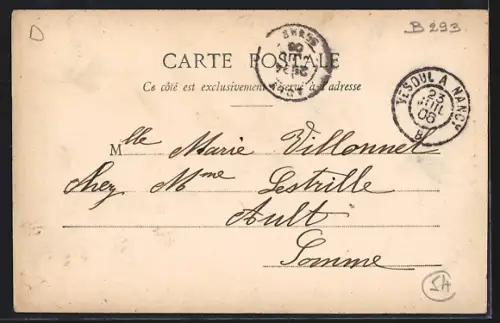 D
B 293
CARTE POSTALE
Ce côté est exclusivement réservé à l'adresse
VESOUL A NANCY
23
JUIL
06
SOMME
AULT
Mlle Marie Villonnet
Chez Mme Lestrille
Ault
Somme
54